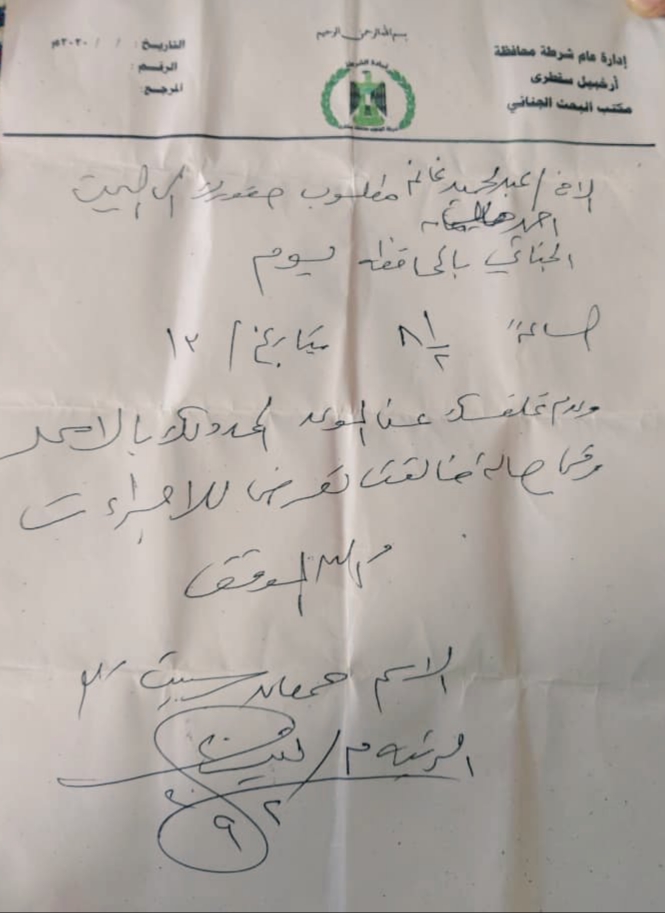 بسم الله الرحمن الرحيم
إدارة عام شرطة محافظة
أرخبيل سقطرى
مكتب البحث الجنائي
التاريخ : / / ٢٠٢٠م
الرقم :
المرجع:
الاخ / عبدالحميد غانم مطلوب حضورك الى البحث
احمد
الجنائي بالمحافظه يوم
الساعة ٨ ١/٢ بتاريخ / ١٢
وعدم تخلفك عن الموعد المحدد لك بالاعلى
وفي حالة مخالفتك تعرض للاجراءات
والله الموفق
الاسم سبيت
الرتبه م /